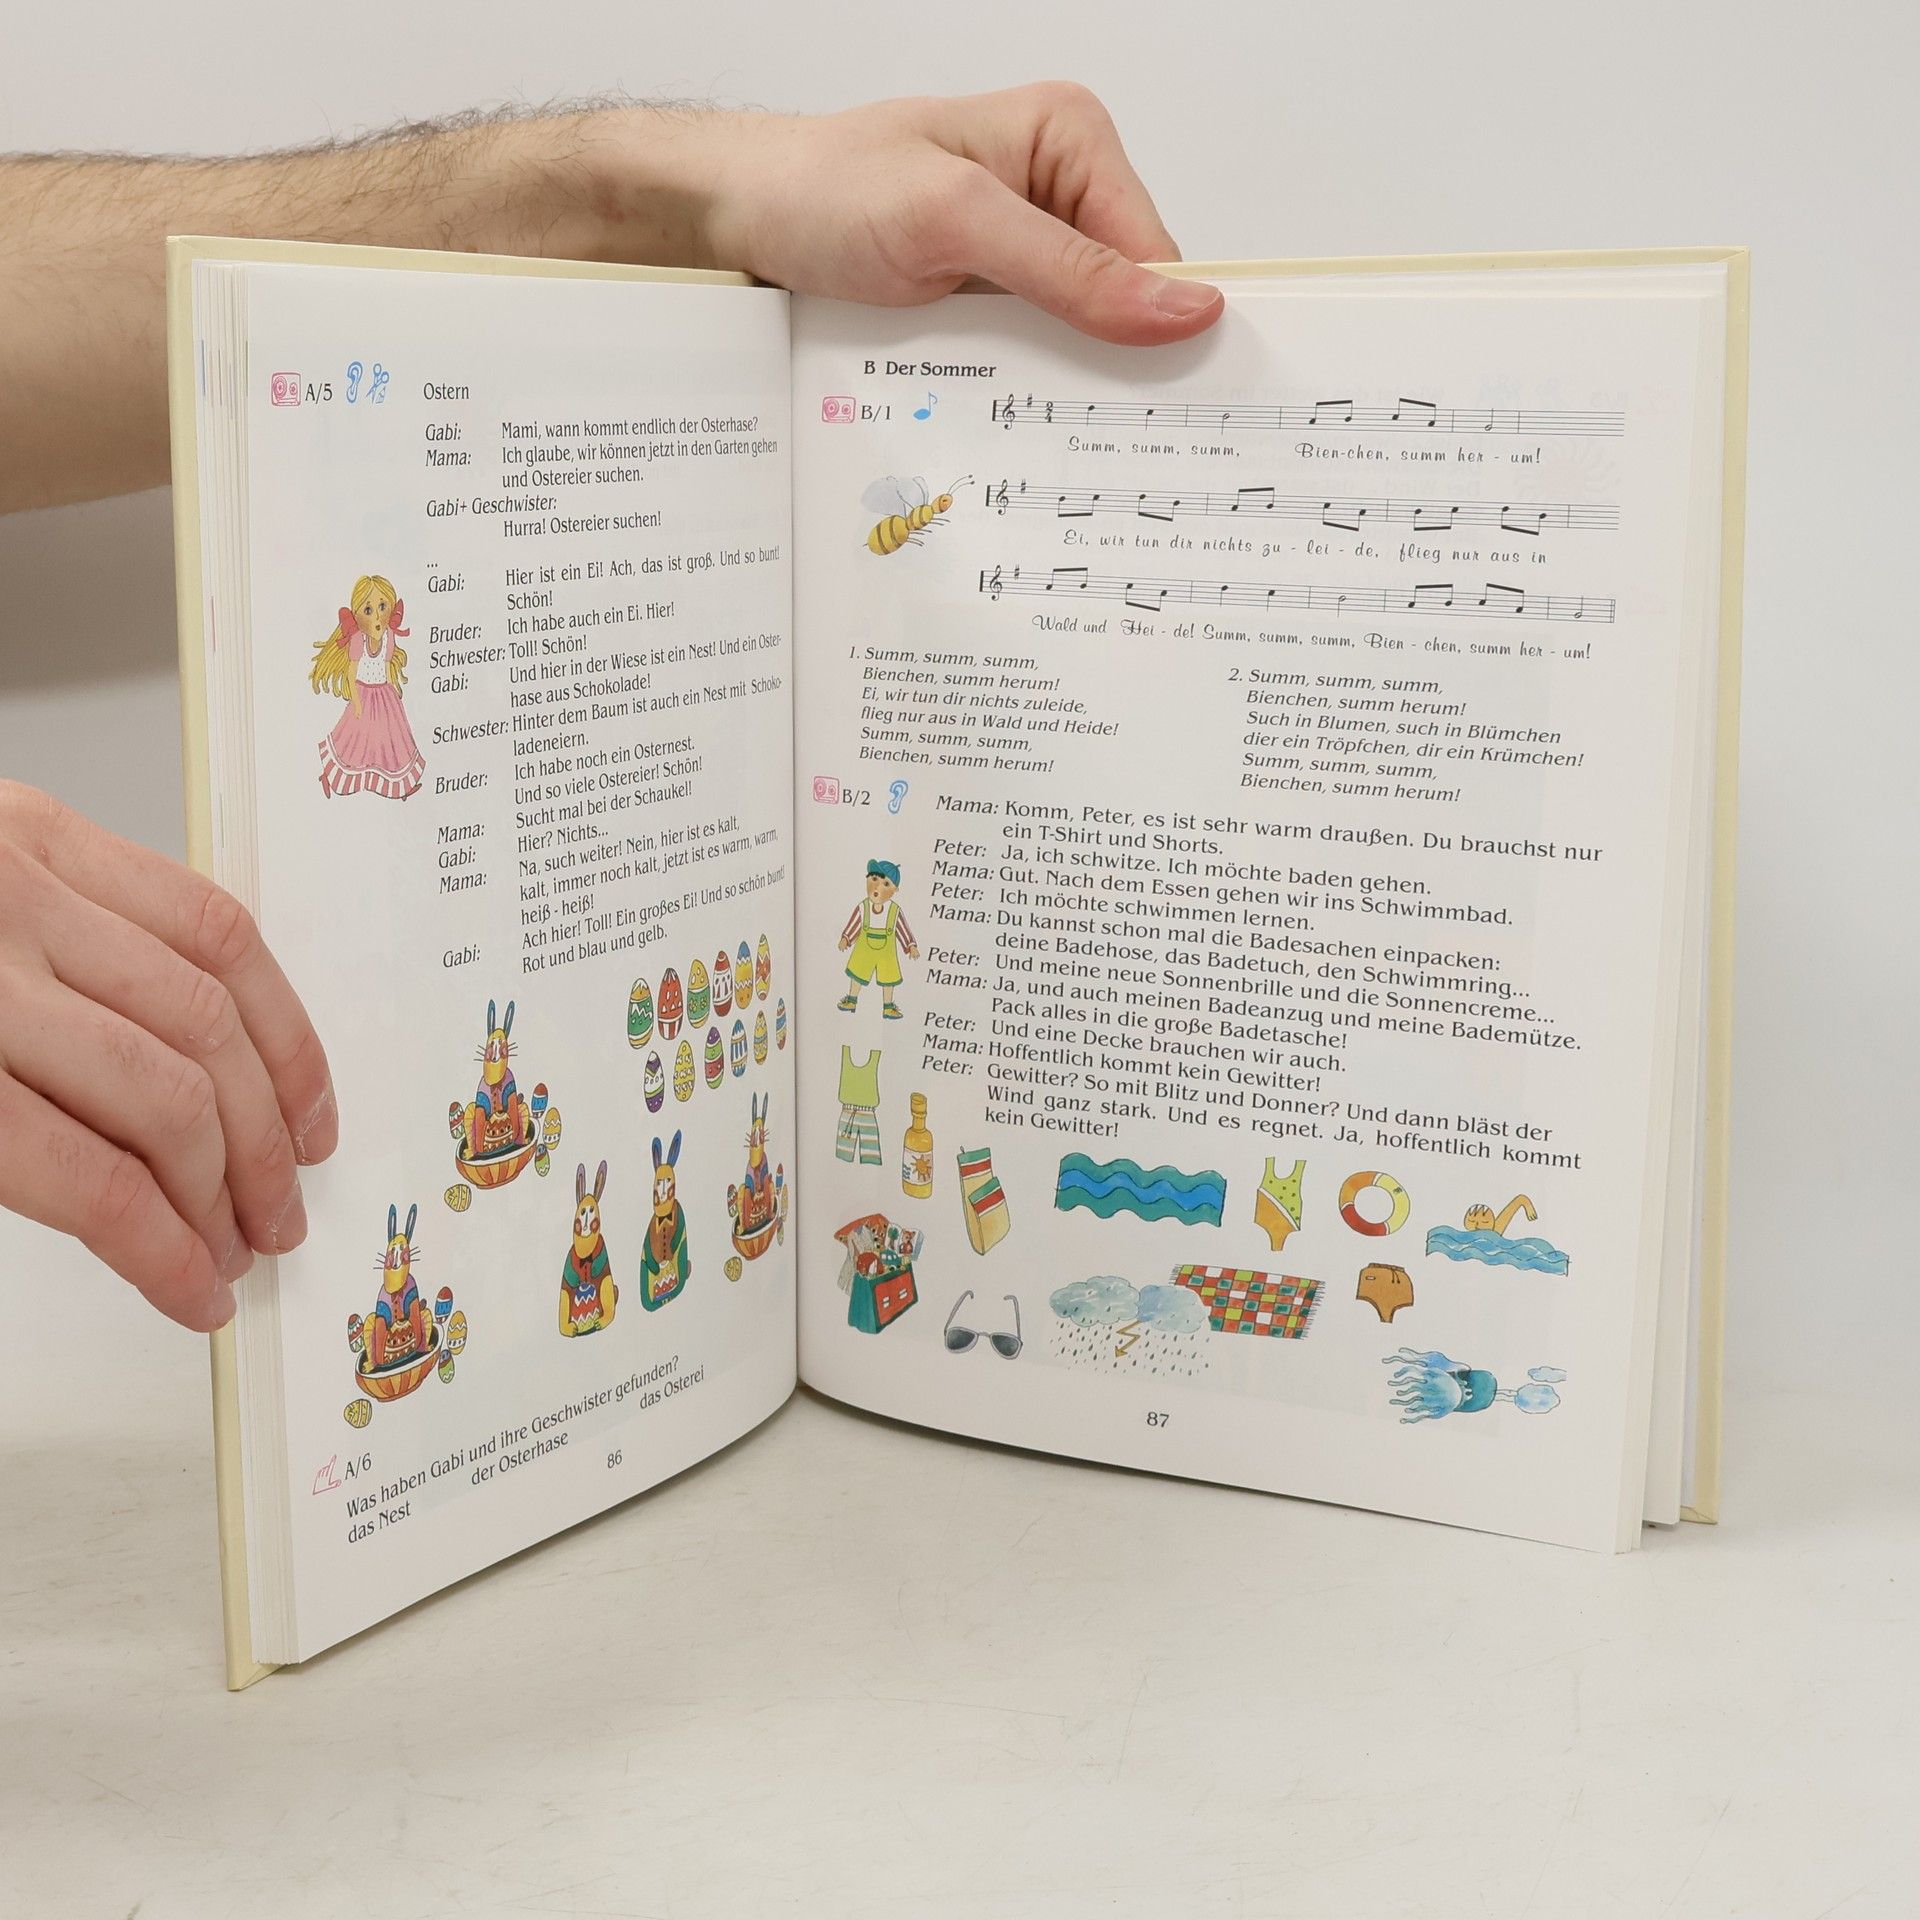 A/5 Ostern
Gabi: Mami, wann kommt endlich der Osterhase?
Mama: Ich glaube, wir können jetzt in den Garten gehen
und Ostereier suchen.
Gabi+ Geschwister:
Hurra! Ostereier suchen!
...
Gabi: Hier ist ein Ei! Ach, das ist groß. Und so bunt!
Schön!
Bruder: Ich habe auch ein Ei. Hier!
Schwester: Toll! Schön!
Gabi: Und hier in der Wiese ist ein Nest! Und ein Oster-
hase aus Schokolade!
Schwester: Hinter dem Baum ist auch ein Nest mit Schoko-
ladeneiern.
Bruder: Ich habe noch ein Osternest.
Und so viele Ostereier! Schön!
Mama: Sucht mal bei der Schaukel!
Gabi: Hier? Nichts...
Mama: Na, such weiter! Nein, hier ist es kalt,
kalt, immer noch kalt, jetzt ist es warm, warm,
heiß - heiß!
Gabi: Ach hier! Toll! Ein großes Ei! Und so schön bunt!
Rot und blau und gelb.
A/6
Was haben Gabi und ihre Geschwister gefunden?
das Nest der Osterhase das Osterei
86
B Der Sommer
B/1
2
4
Summ, summ, summ, Bien-chen, summ her - um!
Ei, wir tun dir nichts zu - lei - de, flieg nur aus in
Wald und Hei - de! Summ, summ, summ, Bien - chen, summ her - um!
1. Summ, summ, summ,
Bienchen, summ herum!
Ei, wir tun dir nichts zuleide,
flieg nur aus in Wald und Heide!
Summ, summ, summ,
Bienchen, summ herum!
2. Summ, summ, summ,
Bienchen, summ herum!
Such in Blumen, such in Blümchen
dier ein Tröpfchen, dir ein Krümchen!
Summ, summ, summ,
Bienchen, summ herum!
B/2
Mama: Komm, Peter, es ist sehr warm draußen. Du brauchst nur
ein T-Shirt und Shorts.
Peter: Ja, ich schwitze. Ich möchte baden gehen.
Mama: Gut. Nach dem Essen gehen wir ins Schwimmbad.
Peter: Ich möchte schwimmen lernen.
Mama: Du kannst schon mal die Badesachen einpacken:
deine Badehose, das Badetuch, den Schwimmring...
Peter: Und meine neue Sonnenbrille und die Sonnencreme...
Mama: Ja, und auch meinen Badeanzug und meine Bademütze.
Pack alles in die große Badetasche!
Peter: Und eine Decke brauchen wir auch.
Mama: Hoffentlich kommt kein Gewitter!
Peter: Gewitter? So mit Blitz und Donner? Und dann bläst der
Wind ganz stark. Und es regnet. Ja, hoffentlich kommt
kein Gewitter!
87